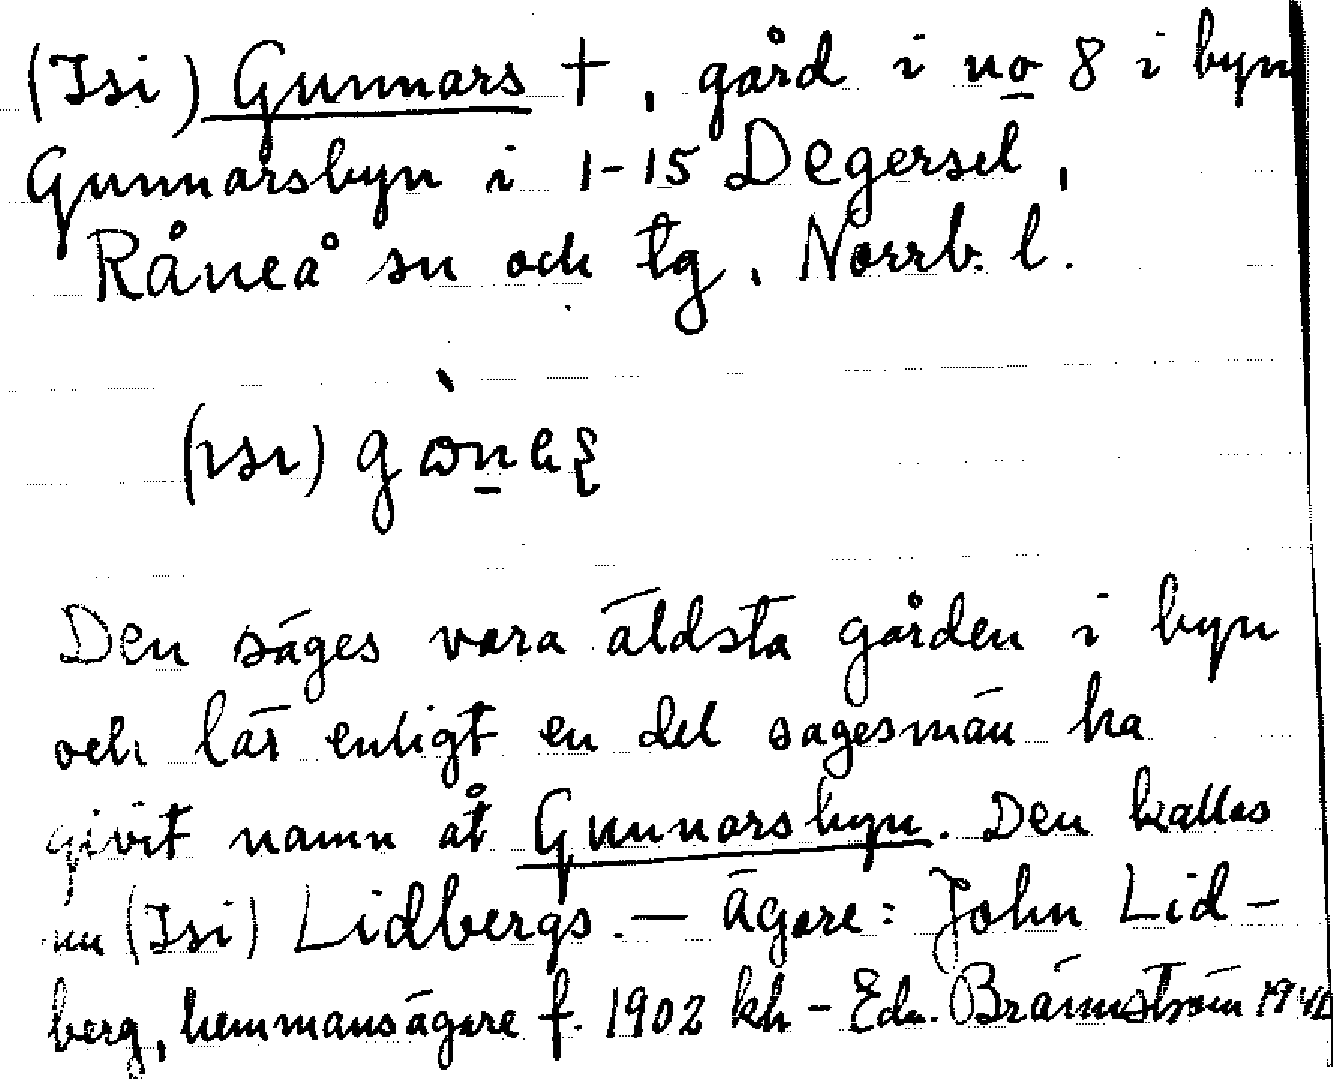 (Isi) Gunnars †, gård i no 8 i byn
Gunnarsbyn i 1-15 Degersel,
Råneå sn och tg, Norrb. l.
(ɪsɪ)
Den säges vara äldsta gården i byn
och lär enligt en del sagesmän ha
givit namn åt Gunnarsbyn. Den kallas
nu (Isi) Lidbergs. — Ägare: John Lid-
berg, hemmansägare f. 1902 kh - Edv. Brännström